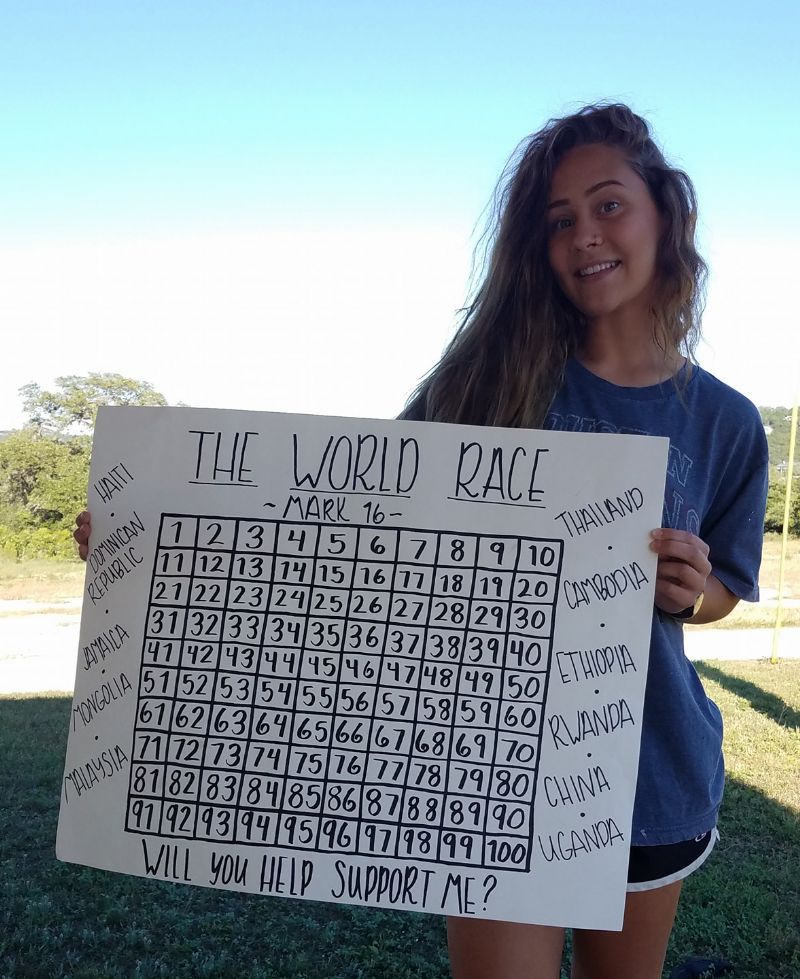 THE WORLD RACE
~ MARK 16 -
HAITI
DOMINICAN
REPUBLIC
JAMAICA
MONGOLIA
MALAYSIA
1 2 3 4 5 6 7 8 9 10
11 12 13 14 15 16 17 18 19 20
21 22 23 24 25 26 27 28 29 30
31 32 33 34 35 36 37 38 39 40
41 42 43 44 45 46 47 48 49 50
51 52 53 54 55 56 57 58 59 60
61 62 63 64 65 66 67 68 69 70
71 72 73 74 75 76 77 78 79 80
81 82 83 84 85 86 87 88 89 90
91 92 93 94 95 96 97 98 99 100
THAILAND
CAMBODIA
ETHIOPIA
RWANDA
CHINA
UGANDA
WILL YOU HELP SUPPORT ME?